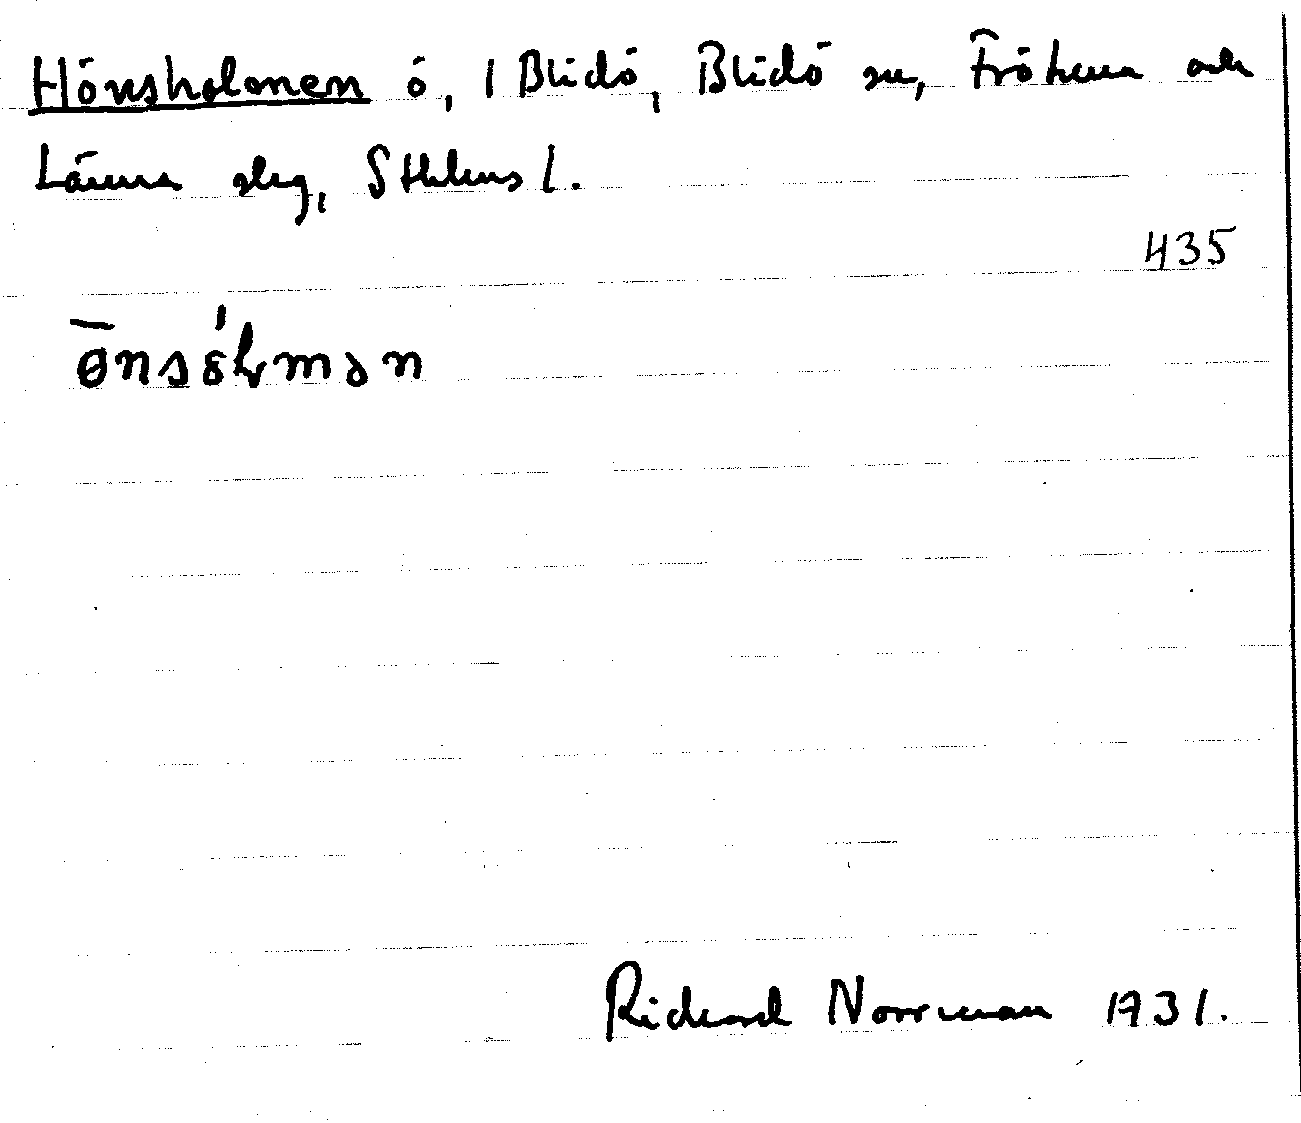 Hönsholmen ö, 1 Blidö, Blidö sn, Frötuna och
Länna slg, Sthlms l.
435
ø̄nsόlmən
Rickard Norrman 1931.